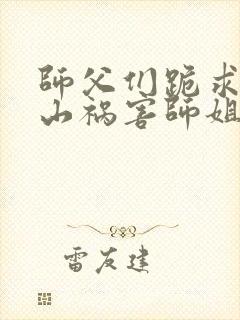 師父们跪求
山祸害師姐
雷友建